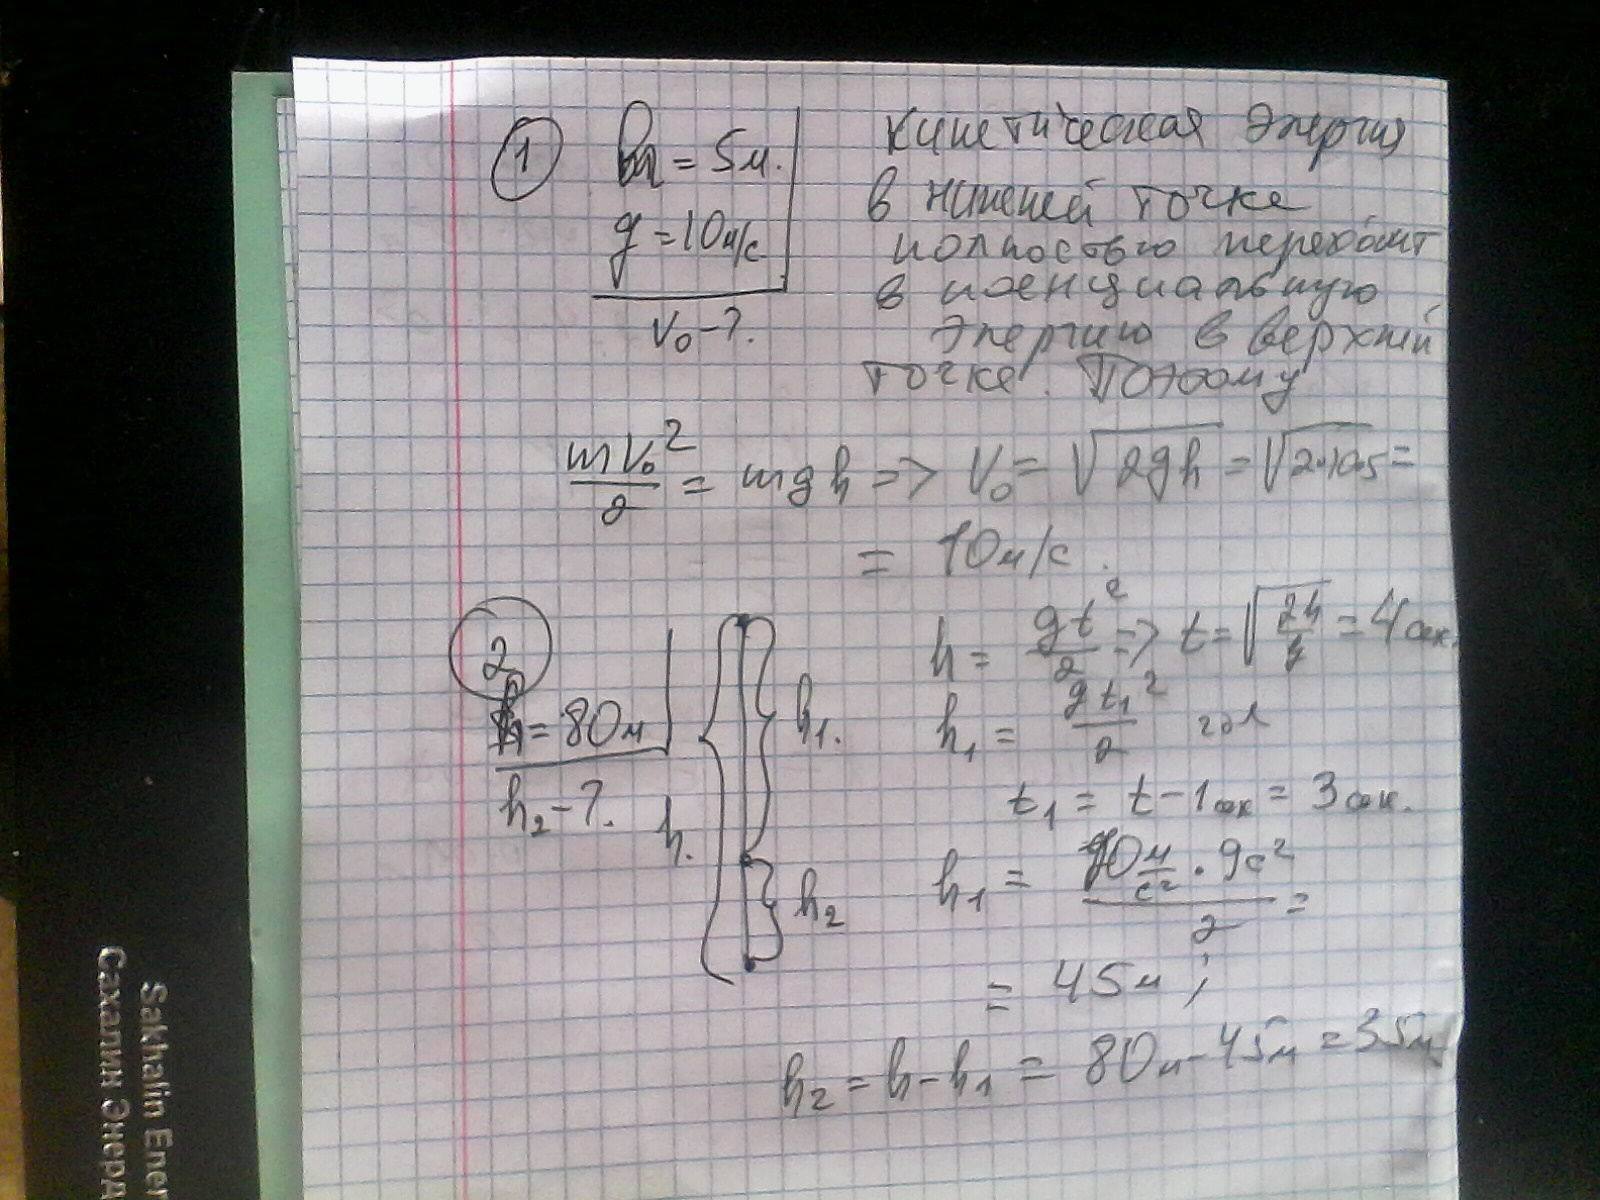 1 h = 5м.
g = 10м/с
V₀ - ?.
Кинетическая энергия
в нижней точке
полностью переходит
в поенциальную
энергию в верхней
точке. Поэтому
mV₀²/2 = mgh => V₀ = √2gh = √2·10·5 =
= 10м/с.
2
h = 80м
h₂ - ?.
h.
h₁.
h₂
h = gt²/2 => t = √2h/g = 4сек.
h₁ = gt₁²/2
t₁ = t - 1сек = 3сек.
h₁ = 10 м/с² · 9с²/2 =
= 45м ;
h₂ = h - h₁ = 80м - 45м = 35м
Sakhalin Ener
Сахалин Энерд